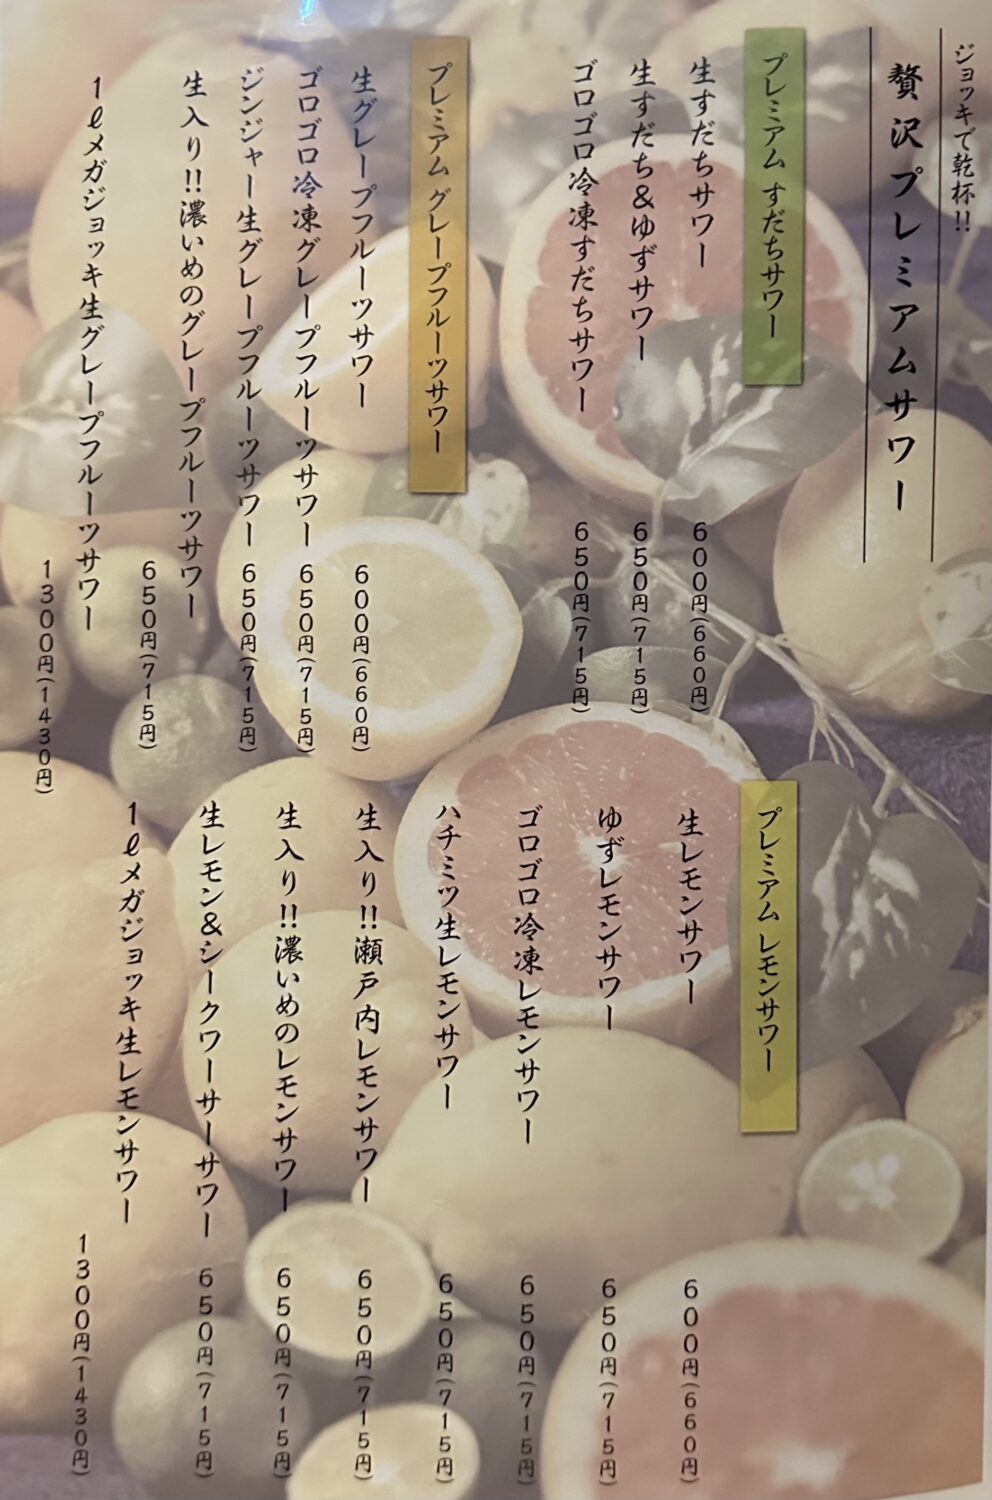 ジョッキで乾杯!!
贅沢プレミアムサワー
プレミアム すだちサワー
生すだちサワー 600円(660円)
生すだち&ゆずサワー 650円(715円)
ゴロゴロ冷凍すだちサワー 650円(715円)
プレミアム グレープフルーツサワー
生グレープフルーツサワー 600円(660円)
ゴロゴロ冷凍グレープフルーツサワー 650円(715円)
ジンジャー生グレープフルーツサワー 650円(715円)
生入り!!濃いめのグレープフルーツサワー 650円(715円)
1ℓメガジョッキ生グレープフルーツサワー 1300円(1430円)
プレミアム レモンサワー
生レモンサワー 600円(660円)
ゆずレモンサワー 650円(715円)
ゴロゴロ冷凍レモンサワー 650円(715円)
ハチミツ生レモンサワー 650円(715円)
生入り!!瀬戸内レモンサワー 650円(715円)
生入り!!濃いめのレモンサワー 650円(715円)
生レモン&シークワーサーサワー 650円(715円)
1ℓメガジョッキ生レモンサワー 1300円(1430円)